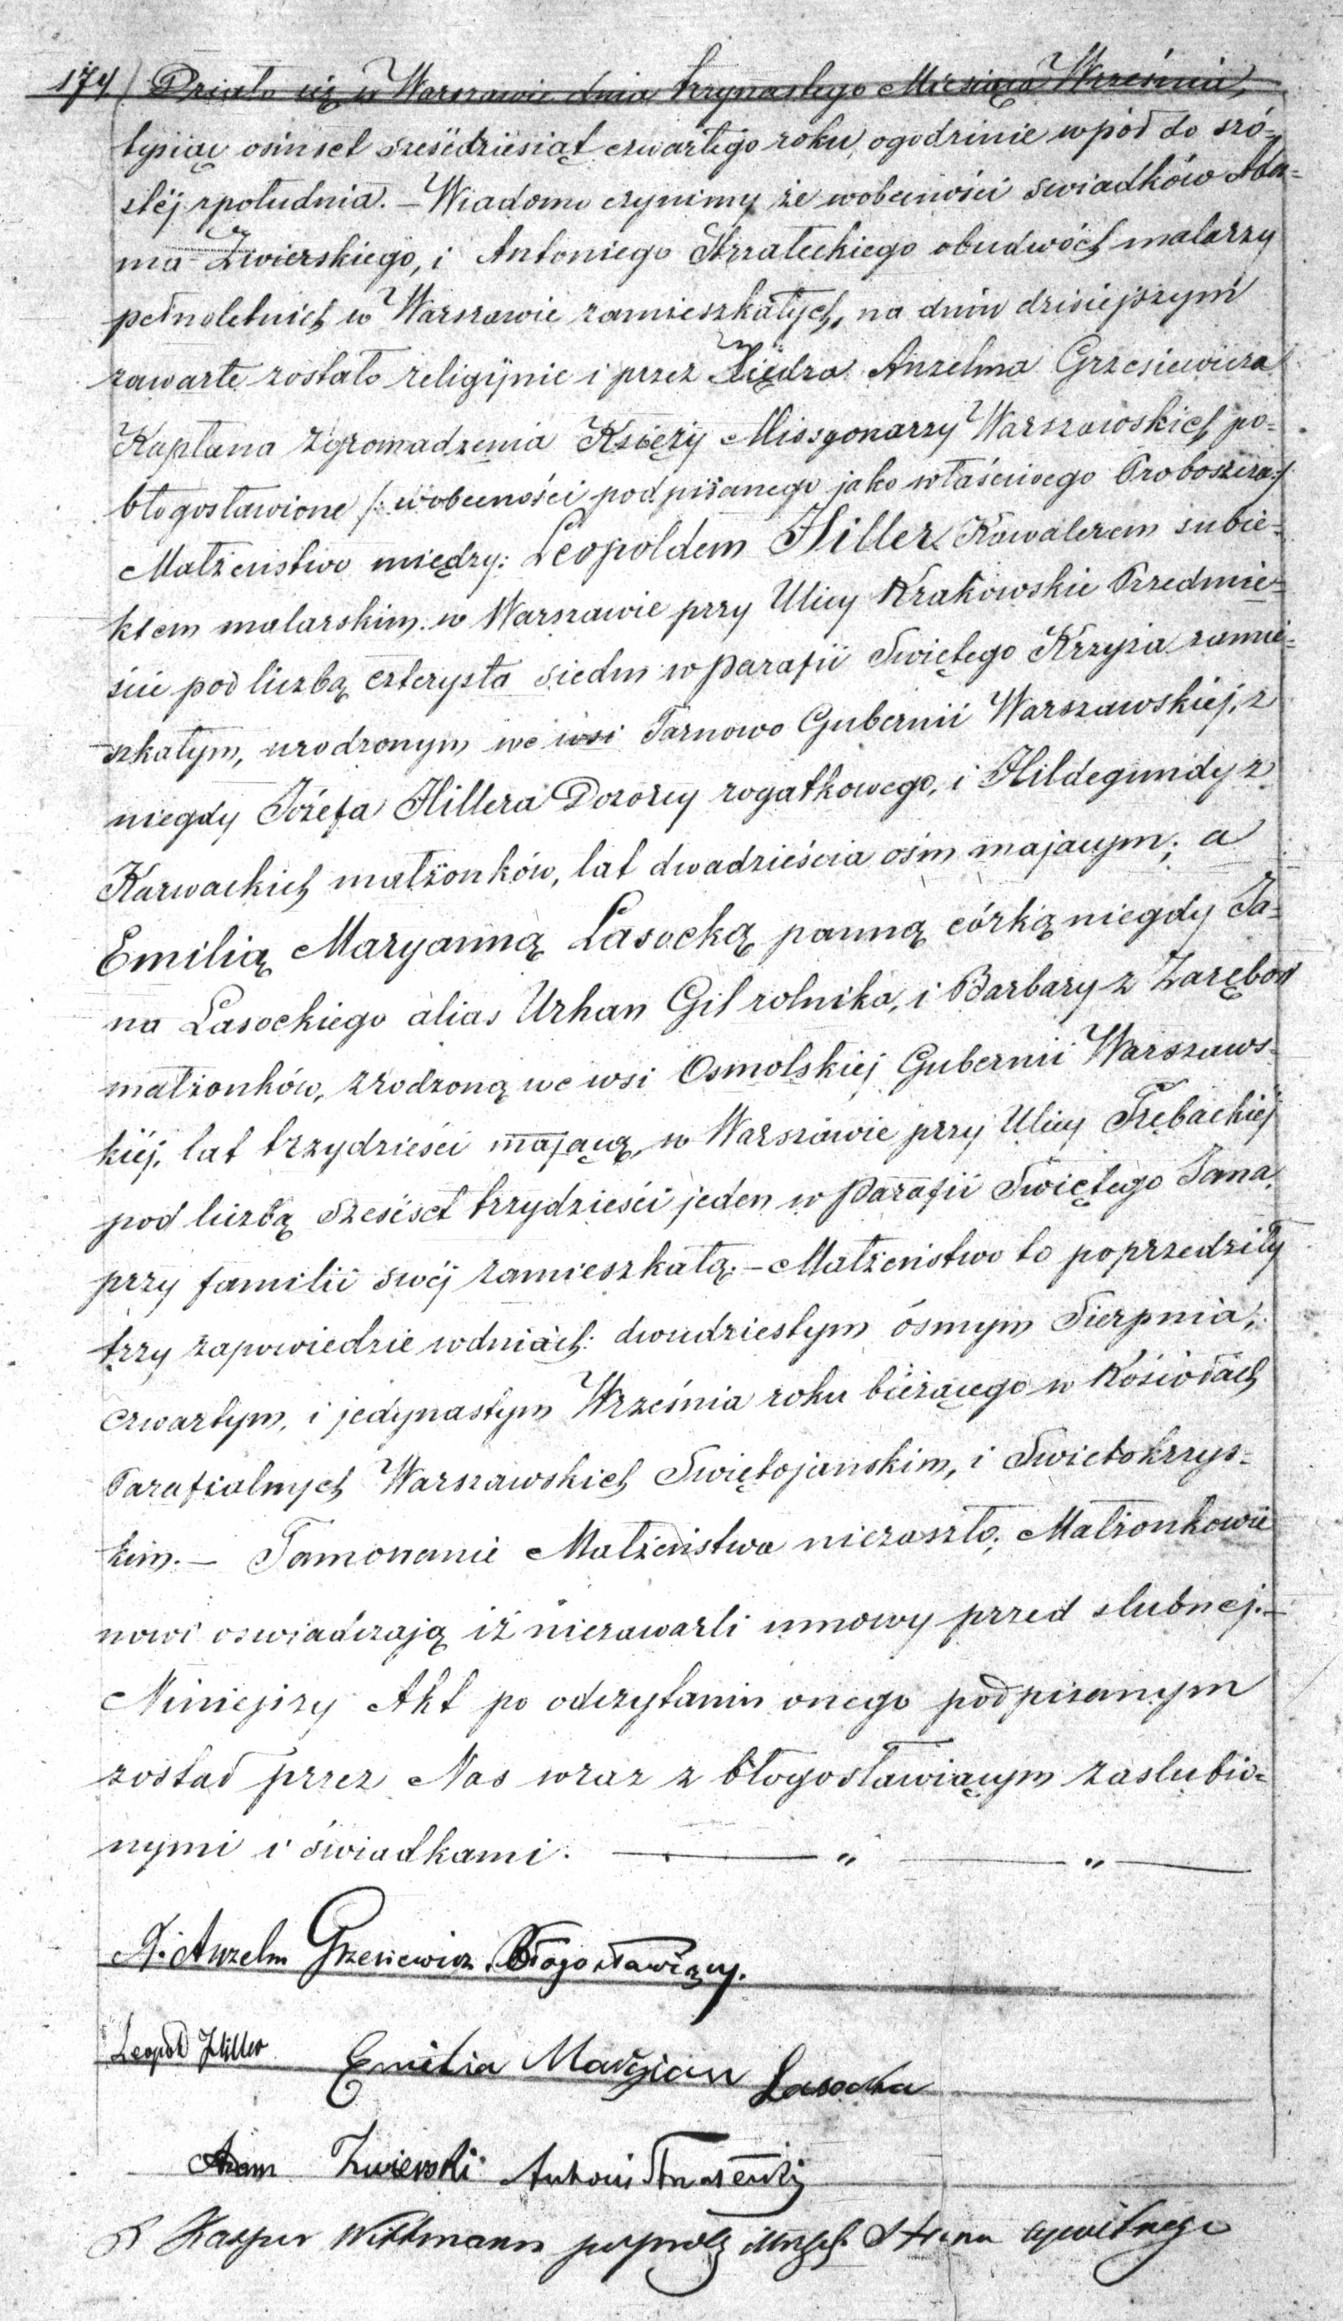 174 Działo się w Warszawie dnia trzynastego Miesiąca Września,
tysiąc ośmset sześćdziesiąt czwartego roku, o godzinie wpół do szó-
stéj z południa. – Wiadomo czynimy że w obecności swiadków Ada-
ma Zwierskiego, i Antoniego Strzałeckiego obudwóch malarzy
pełnoletnich w Warszawie zamieszkałych, na dniu dzisiejszym
zawarte zostało religijnie i przez Xiędza Anzelma Grzesiewicza
Kapłana Zgromadzenia Księży Missyonarzy Warszawskich po-
błogosławione /: w obecności podpisanego jako właściwego Proboszcza :/
Małżeństwo między: Leopoldem Hiller Kawalerem subie-
ktem malarskim w Warszawie przy Ulicy Krakowskie Przedmie-
ście pod liczbą czterysta siedm w parafii Swiętego Krzyża zamie-
szkałym, urodzonym we wsi Tarnowo Gubernii Warszawskiej, z
niegdy Józefa Hillera Dozorcy rogatkowego, i Hildegundy z
Karwackich małżonków, lat dwadzieścia ośm mającym; a
Emilią Maryanną Lasocką panną córką niegdy Ja-
na Lasockiego alias Urhan Gil rolnika, i Barbary z Zarębów
małżonków, zrodzoną we wsi Osmolskiej Gubernii Warszaws-
kiéj, lat trzydzieści mającą, w Warszawie przy Ulicy Trębackiéj
pod liczbą sześćset trzydzieści jeden w parafii Swiętego Jana,
przy familii swéj zamieszkałą. – Małżeństwo to poprzedziły
trzy zapowiedzie w dniach: dwudziestym ósmym Sierpnia,
czwartym, i jedynastym Września roku bieżącego w Kościołach
Parafialnych Warszawskich Swiętojańskim, i Swietokrzys-
kim. – Tamowanie Małżeństwa niezaszło; Małżonkowie
nowi oswiadczają iż niezawarli umowy przed slubnej. –
Niniejszy Akt po odczytaniu onego podpisanym
został przez Nas wraz z błogosławiącym zaslubio-
nymi i świadkami. — " — " —
X. Anzelm Grzesiewicz Błogosławiący.
Leopold Hiller Emilia Maryian Lasocka
Adam Zwierski Antoni Strzałecki
X Kasper Wittmann Stanu cywilnego